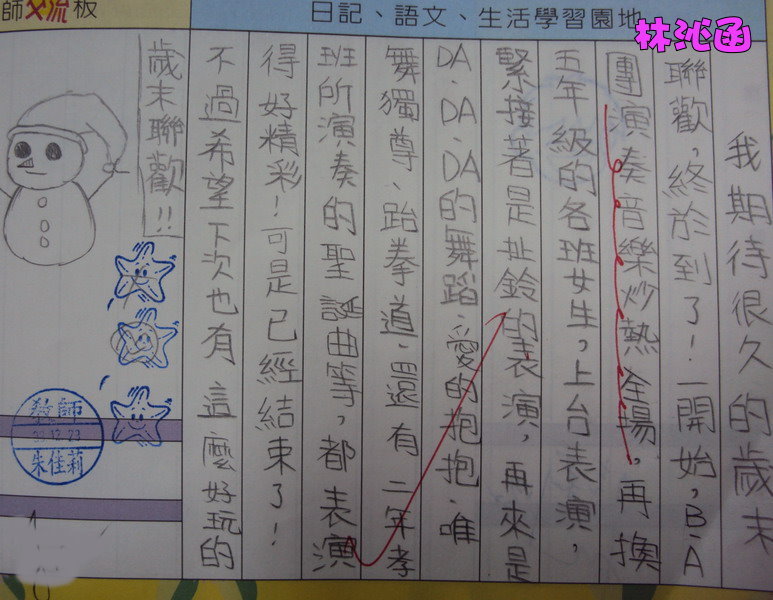 師交流板
日記、語文、生活學習園地
林沁函
我期待很久的歲末
聯歡，終於到了！一開始，B.A
團演奏音樂炒熱全場，再換
五年級的各班女生，上台表演，
緊接著是扯鈴的表演，再來是
DA、DA、DA的舞蹈、愛的抱抱、唯
舞獨尊、跆拳道、還有二年孝
班所演奏的聖誕曲等，都表演
得好精彩！可是已經結束了！
不過希望下次也有這麼好玩的
歲末聯歡！！
教師
朱佳莉